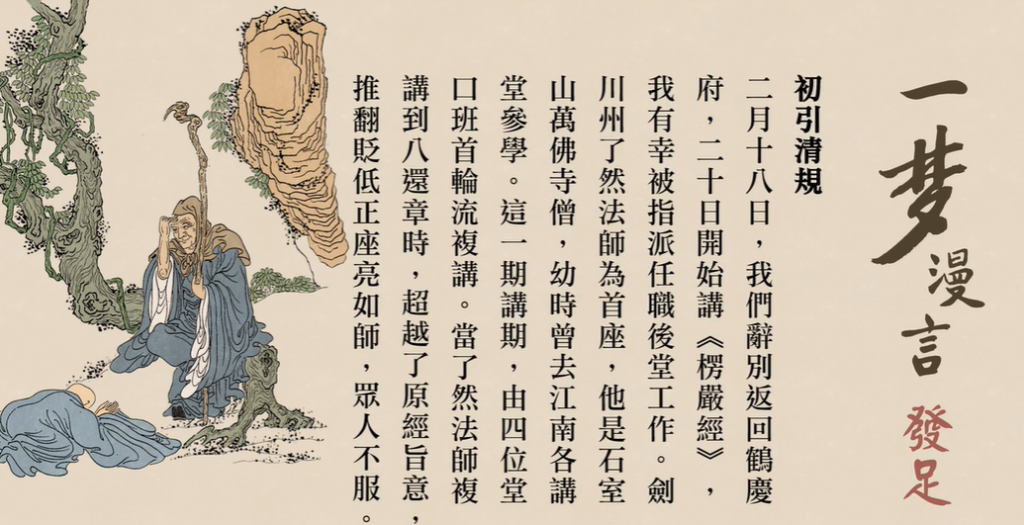 一梦漫言
發足
初引清規
二月十八日，我們辭別返回鶴慶
府，二十日開始講《楞嚴經》，
我有幸被指派任職後堂工作。劍
川州了然法師為首座，他是石室
山萬佛寺僧，幼時曾去江南各講
堂參學。這一期講期，由四位堂
口班首輪流複講。當了然法師複
講到八還章時，超越了原經旨意，
推翻貶低正座亮如師，眾人不服。